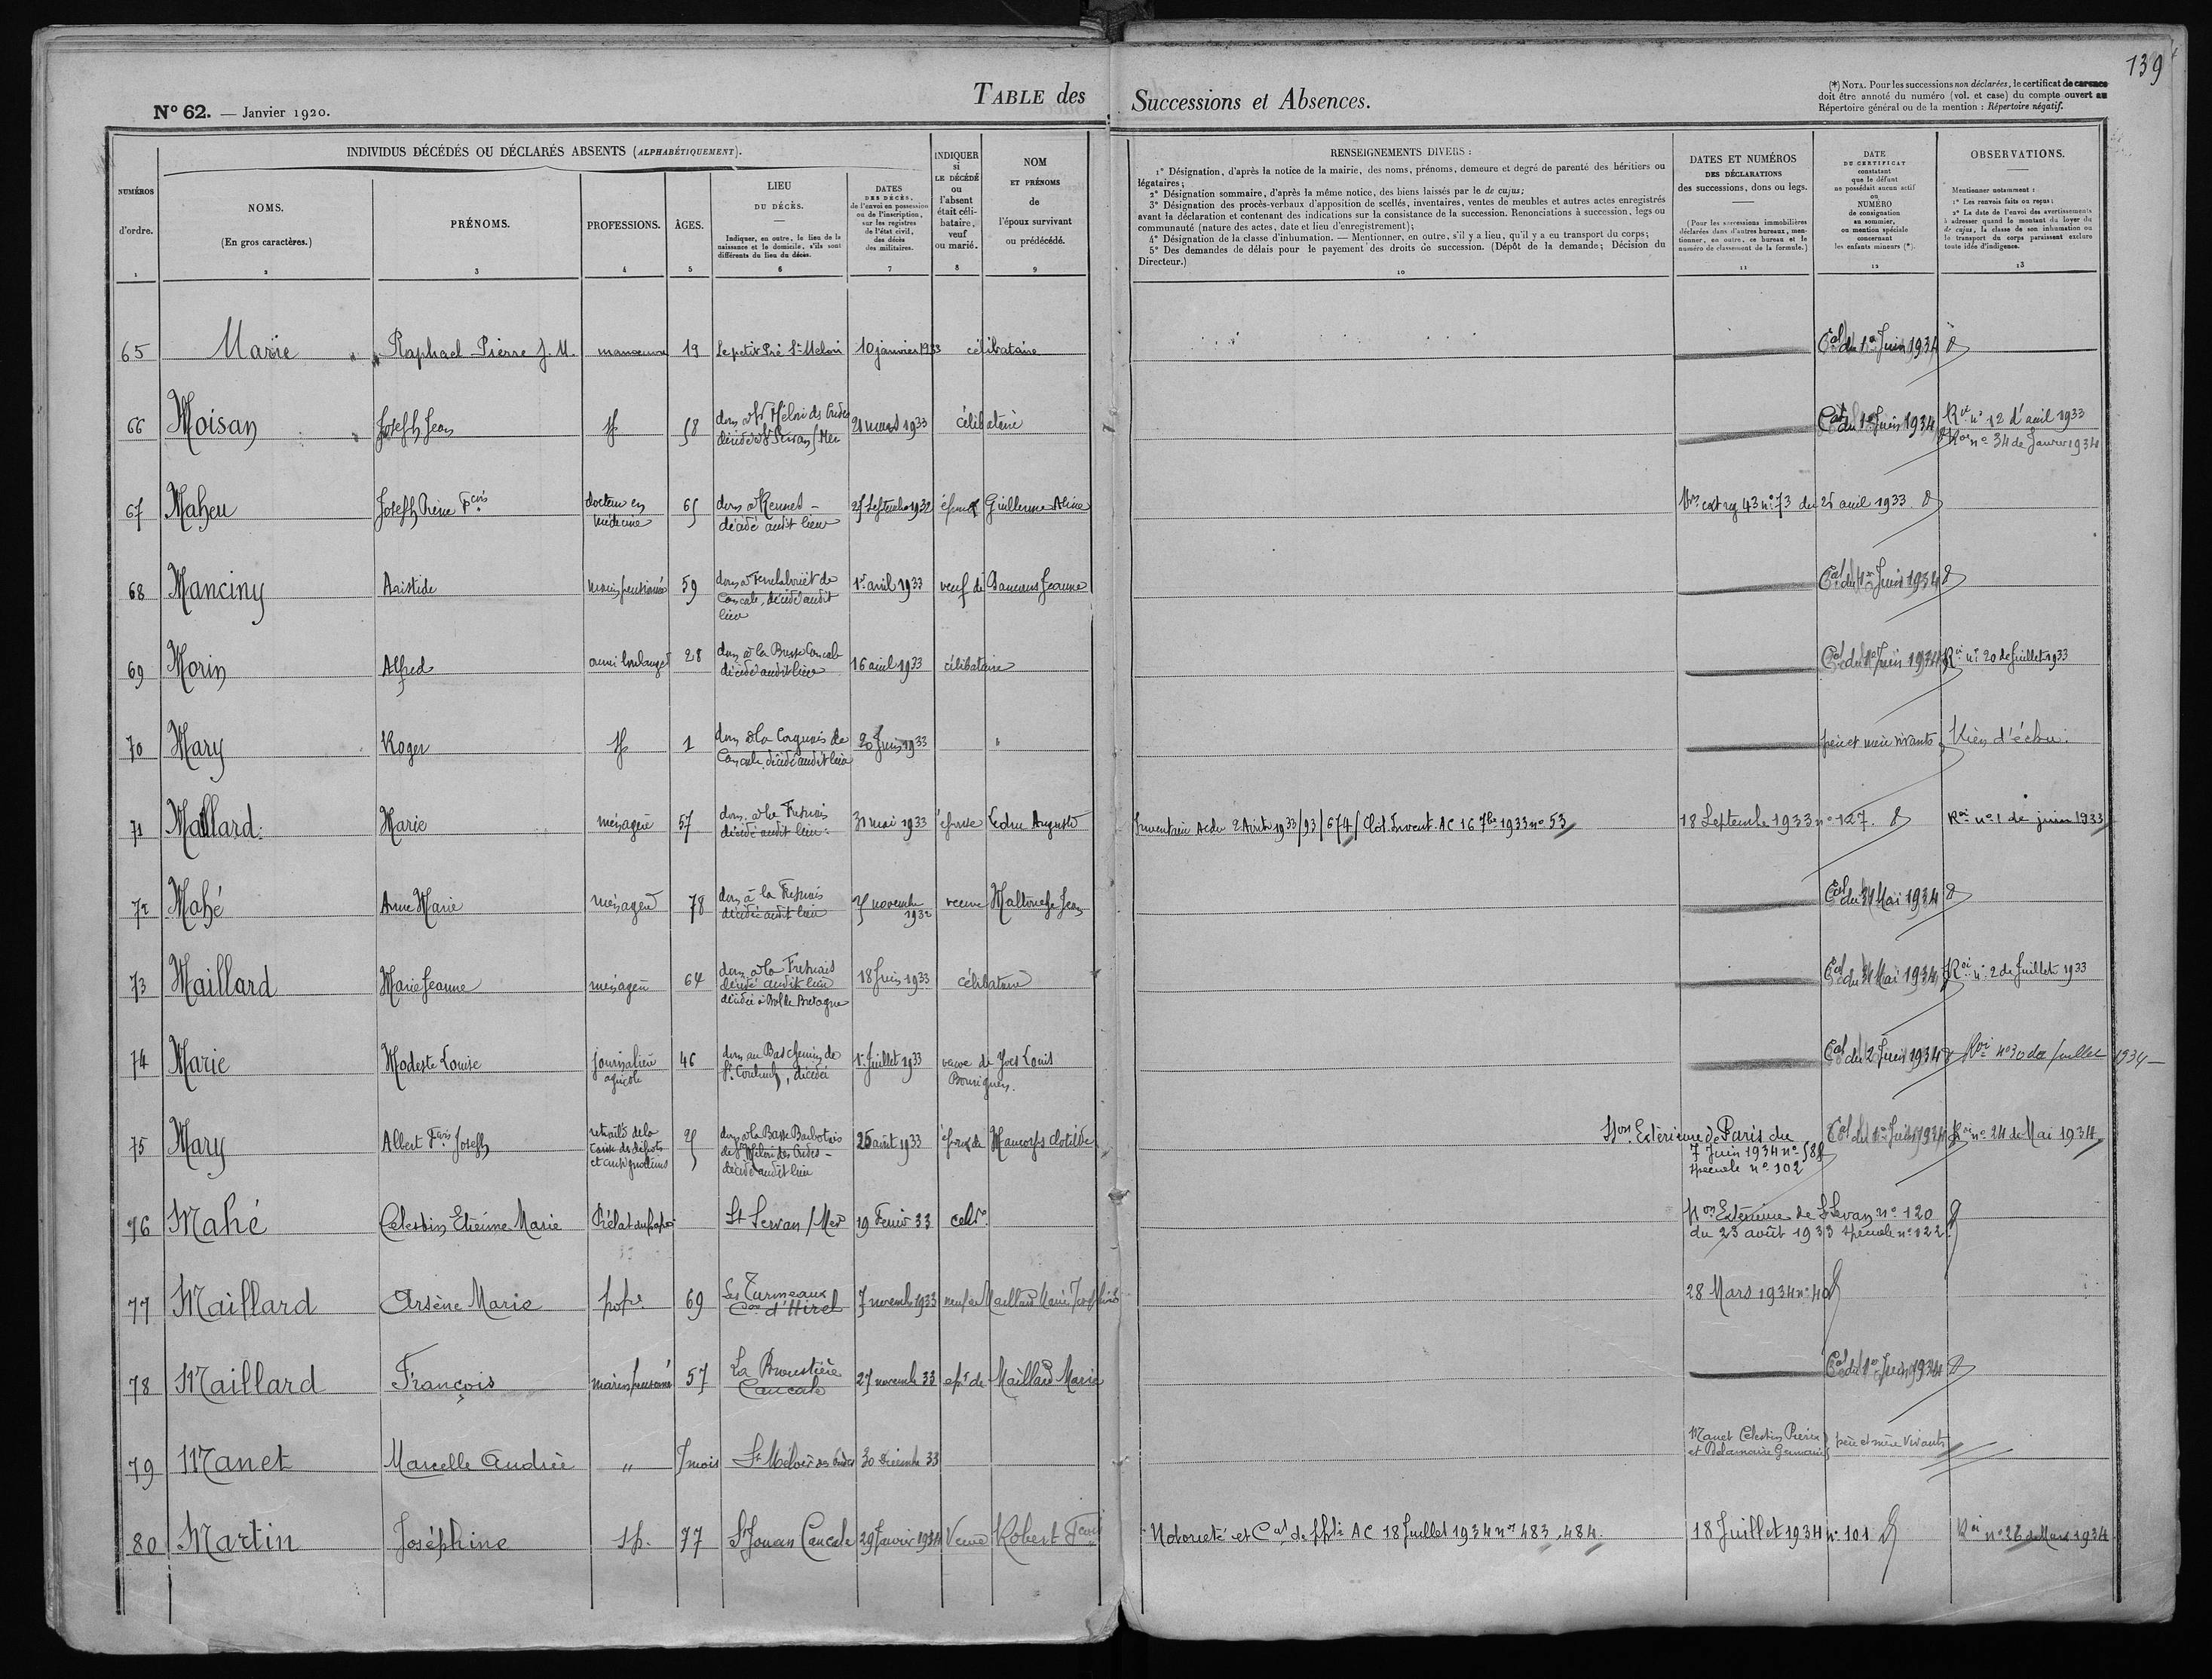 139
N° 62. — Janvier 1920.
TABLE des Successions et Absences.
(*) NOTA. Pour les successions non déclarées, le certificat de carence
doit être annoté du numéro (vol. et case) du compte ouvert au
Répertoire général ou de la mention : Répertoire négatif.
NUMÉROS
d'ordre.
1
INDIVIDUS DÉCÉDÉS OU DÉCLARÉS ABSENTS (ALPHABÉTIQUEMENT).
NOMS.
(En gros caractères.)
2
PRÉNOMS.
3
PROFESSIONS.
4
ÂGES.
5
LIEU
DU DÉCÈS.
Indiquer, en outre, le lieu de la
naissance et le domicile, s'ils sont
différents du lieu du décès.
6
DATES
DES DÉCÈS,
de l'envoi en possession
ou de l'inscription,
sur les registres
de l'état civil,
des décès
des militaires.
7
INDIQUER
si
LE DÉCÉDÉ
ou
l'absent
était céli-
bataire,
veuf
ou marié.
8
NOM
ET PRÉNOMS
de
l'époux survivant
ou prédécédé.
9
RENSEIGNEMENTS DIVERS :
1° Désignation, d'après la notice de la mairie, des noms, prénoms, demeure et degré de parenté des héritiers ou
légataires;
2° Désignation sommaire, d'après la même notice, des biens laissés par le de cujus;
3° Désignation des procès-verbaux d'apposition de scellés, inventaires, ventes de meubles et autres actes enregistrés
avant la déclaration et contenant des indications sur la consistance de la succession. Renonciations à succession, legs ou
communauté (nature des actes, date et lieu d'enregistrement);
4° Désignation de la classe d'inhumation. — Mentionner, en outre, s'il y a lieu, qu'il y a eu transport du corps;
5° Des demandes de délais pour le payement des droits de succession. (Dépôt de la demande; Décision du
Directeur.)
10
DATES ET NUMÉROS
DES DÉCLARATIONS
des successions, dons ou legs.
(Pour les successions immobilières
déclarées dans d'autres bureaux, men-
tionner, en outre, ce bureau et le
numéro de classement de la formule.)
11
DATE
DU CERTIFICAT
constatant
que le défunt
ne possédait aucun actif
ou
NUMÉRO
de consignation
au sommier,
ou mention spéciale
concernant
les enfants mineurs (*).
12
OBSERVATIONS.
Mentionner notamment :
1° Les renvois faits ou reçus;
2° La date de l'envoi des avertissements
à adresser quand le montant du loyer du
de cujus, la classe de son inhumation ou
le transport du corps paraissent exclure
toute idée d'indigence.
13
65 Marie Raphael Pierre J. M. manoeuvre 19 Le petit Pré St Meloir 10 janvier 1933 célibataire Cat du 1er Juin 1934
66 Moisan Joseph Jean sp 58 dom à St Méloir des Ondes 21 mars 1933 célibataire Cat du 1er Juin 1934 Roi n° 12 d'avril 1933
décédé à St Servan s/Mer Roi n° 34 de Janvier 1934
67 Maheu Joseph Pierre Fçois docteur en 65 dom à Rennes - 25 Septembre 1932 époux Guillerme Aline reg 43 n° 73 du 25 avril 1933
médecine décédé audit lieu
68 Manciny Aristide marin pensionné 59 1er avril 1933 veuf de Jeanne Cat du 1er Juin 1934
Cancale, décédé audit
lieu
69 Morin Alfred ouvrier boulanger 28 dom à la Basse Cancale 16 avril 1933 célibataire Cat du 1er Juin 1934 Roi n° 20 de Juillet 1933
décédé audit lieu
70 Mary Roger sp 1 dom à la de 20 Juin 1933 " père et mère vivants Rien d'échu.
Cancale, décédé audit lieu
71 Maillard Marie ménagère 57 dom. à la Fresnais 31 mai 1933 épouse Ledru Auguste Inventaire 1933/93/674/ Clot. Invent. AC 16 7bre 1933 n° 53 18 Septembre 1933 n° 127. Roi n° 1 de juin 1933
décédé audit lieu
72 Mahé Anne Marie ménagère 78 dom à la Fresnais 25 novembre veuve Jean Cat du 31 Mai 1934
décédée audit lieu 1932
73 Maillard Marie Jeanne ménagère 64 dom à la Fresnais 18 Juin 1933 célibataire Cat du 31 Mai 1934 Roi n° 2 de Juillet 1933
décédé audit lieu
décédée à Dol de Bretagne
74 Marie Modeste Louise journalière 46 dom au Bas chemin de 1er Juillet 1933 veuve de Yves Louis Cat du 2 Juin 1934 Roi n° 30 de Juillet 1934
agricole St Coulomb, décédée
75 Mary Albert Fçois Joseph retraité de la dom à la Basse 25 août 1933 époux de Clotilde Son Extérieure de Paris du Cat du 1er Juin 1934 Roi n° 24 de Mai 1934
Caisse des dépôts de St Méloir des Ondes - 7 Juin 1934
et consignations décédé audit lieu spéciale n° 102
76 Mahé Célestin Etienne Marie Prélat du pape St Servan s/Mer 19 Février 33 celibre Son Extérieure de St Servan n° 120
du 23 août 1933 spéciale n° 122
77 Maillard Arsène Marie propre 69 Les Turmeaux 7 novembre 1933 28 Mars 1934 n° 40
Cne d'Hirel
78 Maillard François marin pensionné 57 La 27 novembre 33 epx de Maillard Maria Cat du 1er Juin 1934
Cancale
79 Manet Marcelle Andrée " 7 mois St Méloir des Ondes 30 décembre 33 Manet Célestin Pierre père et mère vivants
et Delamaire Germaine
80 Martin Joséphine sp. 77 St Jouan Cancale 29 Janvier 1934 Veuve Robert Fçois Notoriété et Cat de ppté AC 18 Juillet 1934 nos 483, 484. 18 Juillet 1934 n° 101 Roi n° 26 de Mars 1934